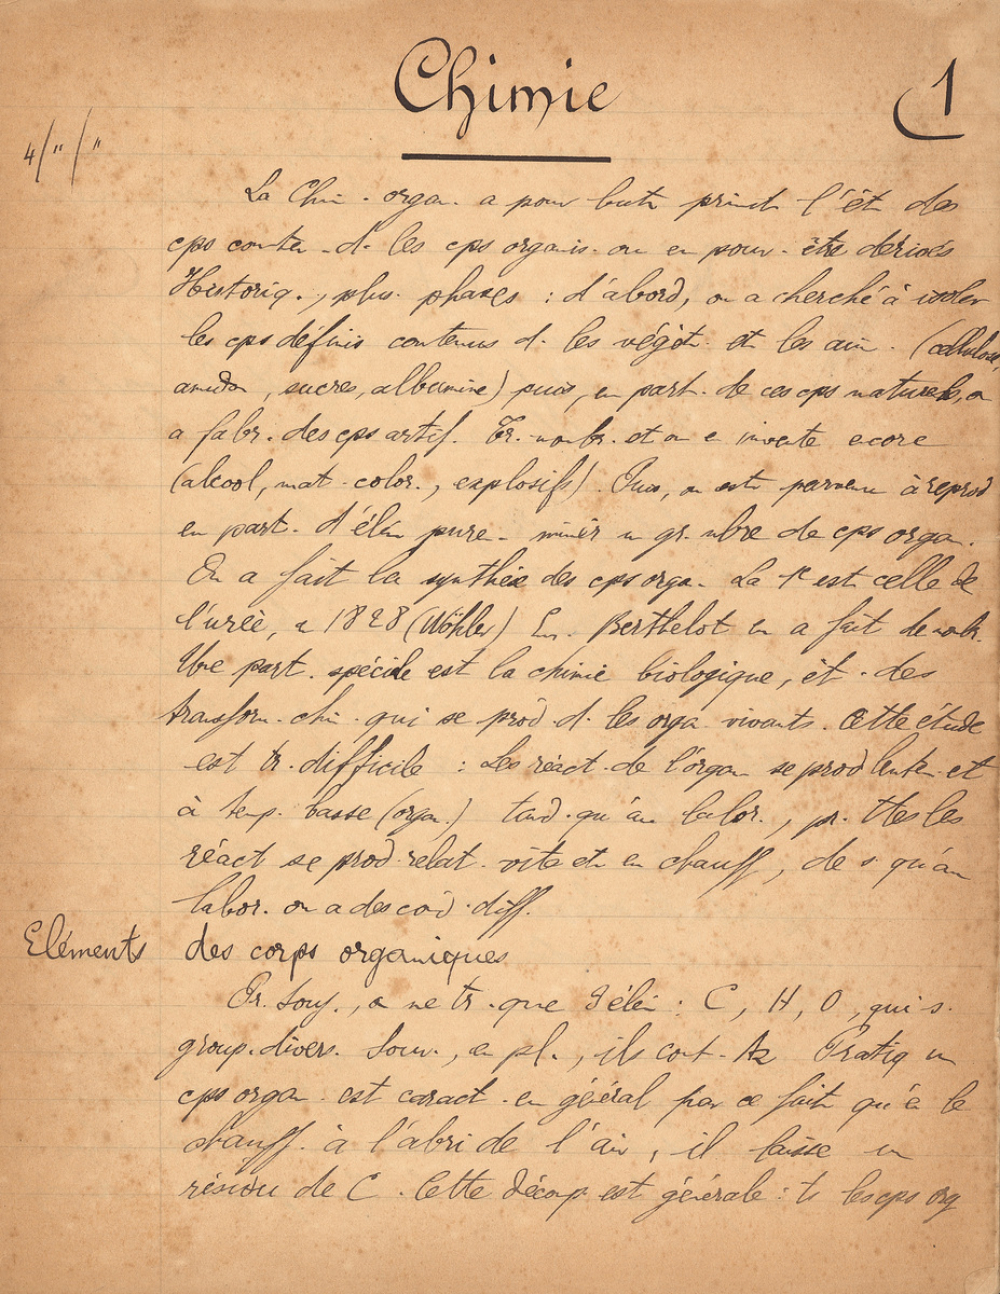 Chimie
1
4/"/"
La Chi. organ. a pour but princ l'ét des
cps conten. d. les cps organis. ou en pouv. être dérivés
Historiq., plus. phases : d'abord, on a cherché à isoler
les cps définis contenus d. les végét. et les ani. (cellulose,
amidon, sucres, albumine) puis, en part. de ces cps naturels, on
a fabr. des cps artif. Tr. nombr. et on en invente encore
(alcool, mat. color., explosifs). Puis, on est parvenu à reprod
en part. d'élém pure. minér un gr. nbre de cps organ.
On a fait la synthèse des cps orga. La 1re est celle de
l'urée, en 1828 (Wöhler) Berthelot en a fait de nombr.
Une part. spéciale est la chimie biologique, ét. des
transform. chi. qui se prod d. les orga vivants. Cette étude
est tr. difficile : Les réact. de l'organ se prod lentem. et
à temp. basse (organ.) tand. qu'au labor., pr. ttes les
réact se prod relat. vite et en chauff, de s qu'au
labor. on a des cond. diff.
Eléments des corps organiques
Tr. souv., on ne tr. que 3 élém : C, H, O, qui s.
group. divers. Souv., en pl., ils cont. Az Pratiq un
cps organ. est caract. en général par ce fait qu'en le
chauff. à l'abri de l'air, il laisse un
résidu de C. Cette décomp est générale : ts les cps org